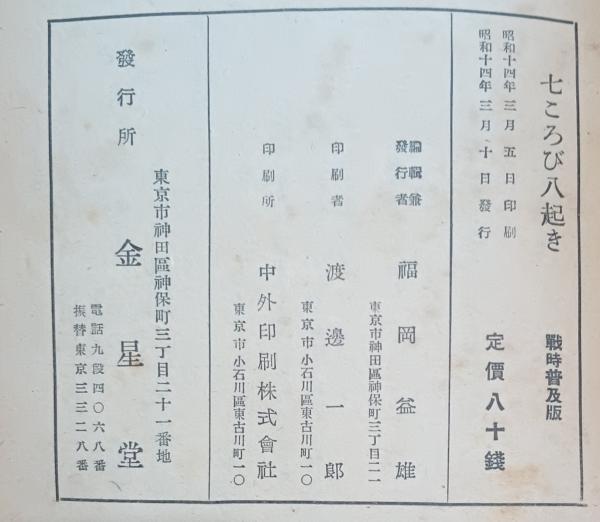 七ころび八起き
戰時普及版
昭和十四年三月五日印刷
昭和十四年三月十日發行
定價八十錢
編輯兼
發行者
福岡益雄
東京市神田區神保町三丁目二一
印刷者
渡邊一郎
東京市小石川區東古川町一〇
印刷所
中外印刷株式會社
東京市小石川區東古川町一〇
發行所
東京市神田區神保町三丁目二十一番地
金星堂
電話九段四〇六八番
振替東京三三二八番